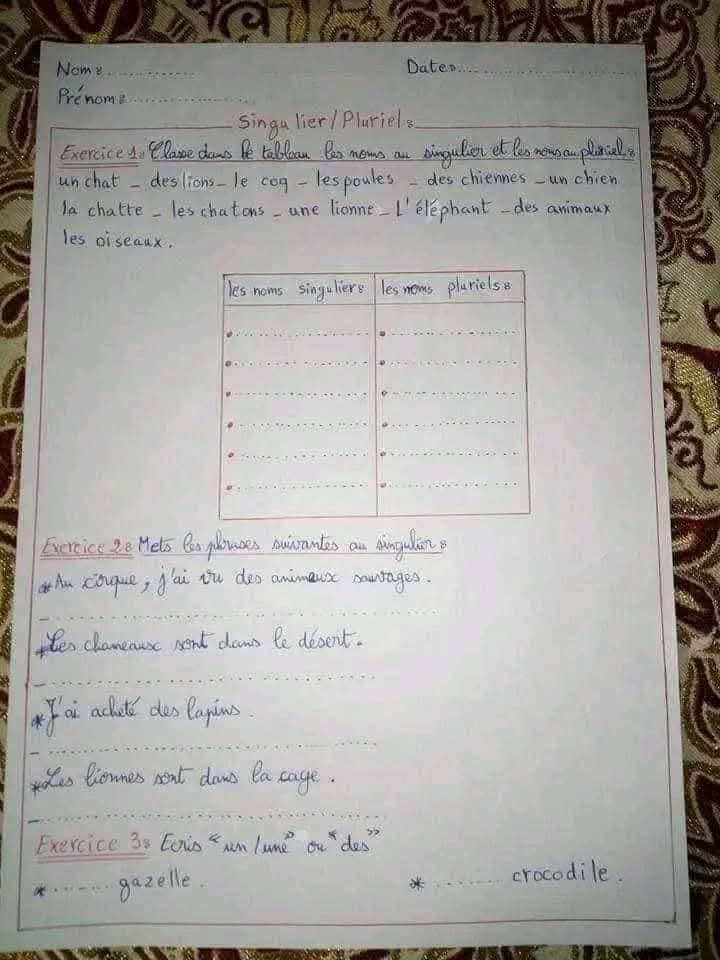 Nom : ..............
Date : ........................
Prénom : ....................
Singulier/Pluriel :
Exercice 1 : Classe dans le tableau les noms au singulier et les noms au pluriel :
un chat - des lions - le coq - les poules - des chiennes - un chien
la chatte - les chatons - une lionne - L'éléphant - des animaux
les oiseaux.
les noms singulier : les noms pluriels :
Exercice 2 : Mets les phrases suivantes au singulier :
* Au cirque, j'ai vu des animaux sauvages.
- ........................................
* Les chameaux sont dans le désert.
- ........................................
* J'ai acheté des lapins.
- ........................................
* Les lionnes sont dans la cage.
- ........................................
Exercice 3 : Ecris "un/une" ou "des"
* ....... gazelle. * ....... crocodile.